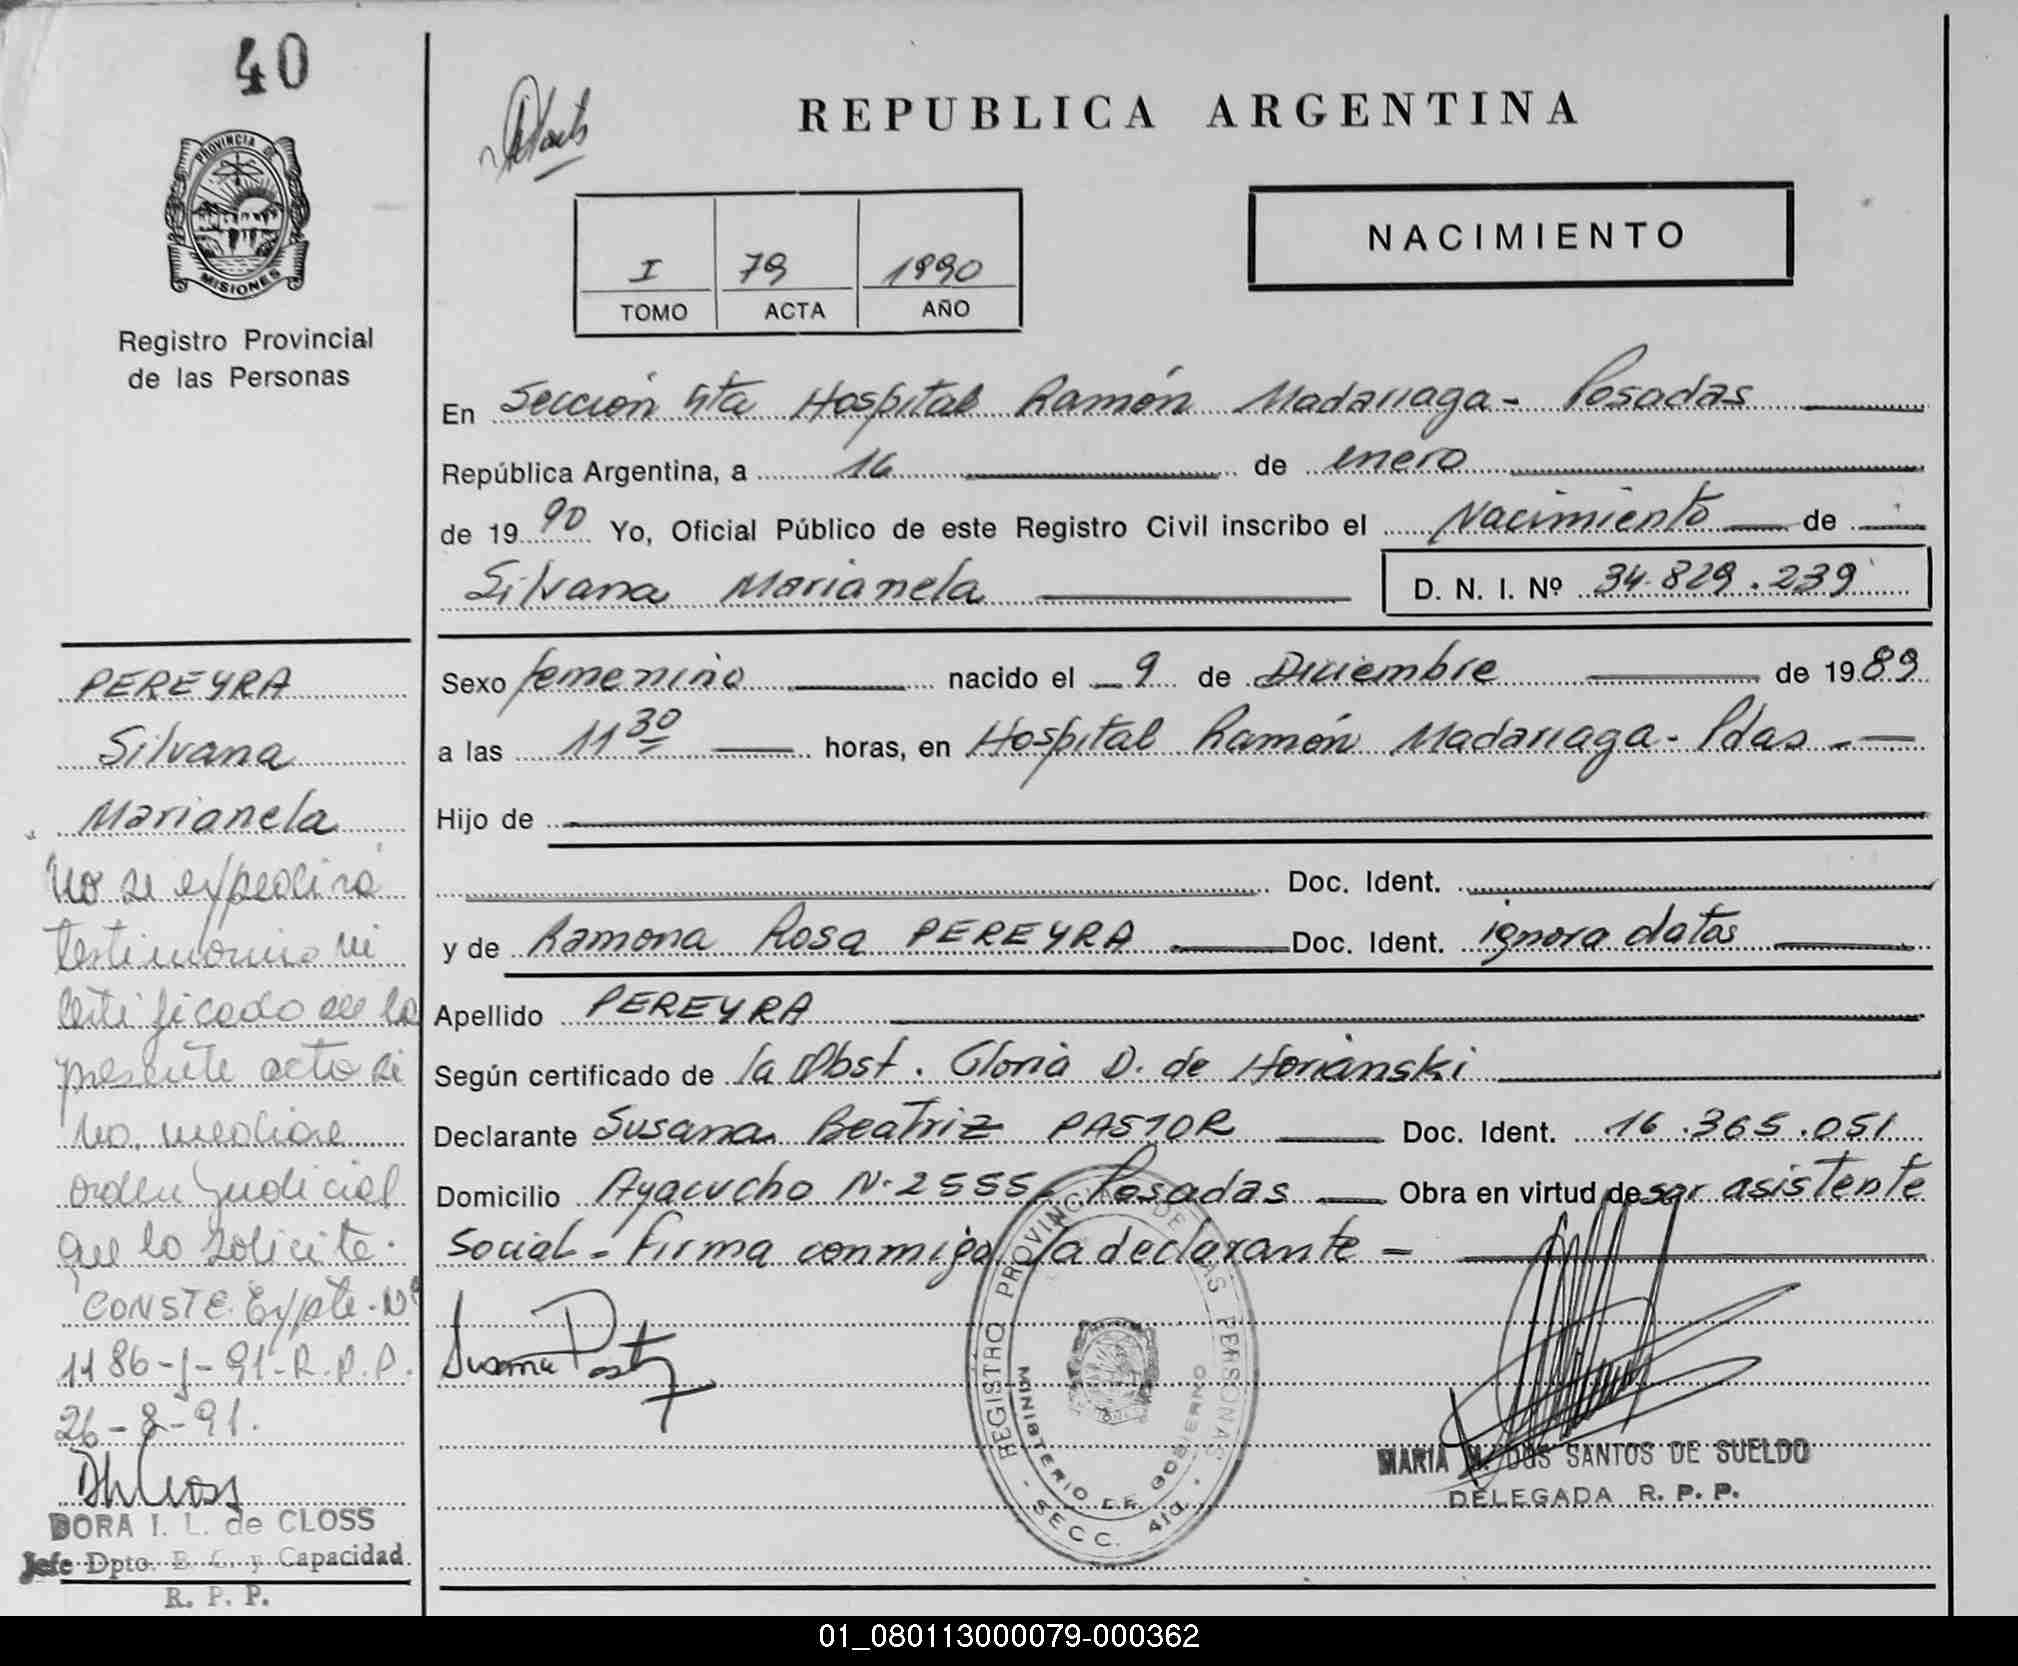 40
REPUBLICA ARGENTINA
PROVINCIA DE
MISIONES
Registro Provincial
de las Personas
NACIMIENTO
I 79 1990
TOMO ACTA AÑO
En Sección 4ta Hospital Ramón Madariaga - Posadas
República Argentina, a 16 de enero
de 1990 Yo, Oficial Público de este Registro Civil inscribo el Nacimiento de
Silvana Marianela D. N. I. Nº 34.829.239
Sexo femenino nacido el 9 de Diciembre de 1989
a las 11 30 horas, en Hospital Ramón Madariaga - Pdas -
Hijo de
Doc. Ident.
y de Ramona Rosa PEREYRA Doc. Ident. ignora datos
Apellido PEREYRA
Según certificado de la Obst. Gloria D. de Horianski
Declarante Susana Beatriz PASTOR Doc. Ident. 16.365.051
Domicilio Ayacucho N. 2555 - Posadas Obra en virtud de ser asistente
Social - Firma conmigo la declarante -
Susana Pastor
REGISTRO PROVINCIAL DE LAS PERSONAS
MINISTERIO DE GOBIERNO
- SECC. 4ta. -
MARIA M. DOS SANTOS DE SUELDO
DELEGADA R. P. P.
PEREYRA
Silvana
Marianela
No se expedirá
testimonio ni
certificado de la
presente acta si
no mediare
orden judicial
que lo solicite.
CONSTE. Expte. Nº
1186-J-91-R.P.P.
26-8-91.
DORA I. L. de CLOSS
Jefe Dpto. E. C. y Capacidad
R. P. P.
01_080113000079-000362